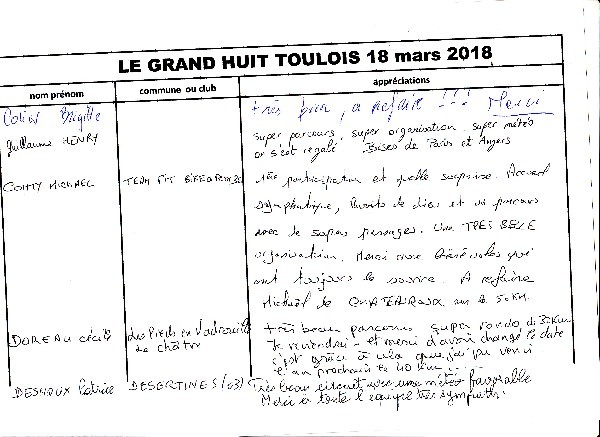 LE GRAND HUIT TOULOIS 18 mars 2018
nom prénom commune ou club appréciations
Colin Brigitte très bien, a refaire !!! Merci
Guillaume HENRY super parcours, super organisation, super météo
on s'est régalé Bises de Paris et Angers
MICHAEL TEAM 1ère participation et quelle surprise. Accueil
sympathique, de et un parcours
avec de supers passages. Une TRES BELLE
organisation. Merci aux bénévoles qui
ont toujours le sourire. A refaire
Michaël de CHATEAUROUX sur le 50KM.
DOREAU Cécile les Pieds en Vadrouille très beau parcours super rando de 32Km
La châtre Je reviendrai - et merci d'avoir changé la date
c'est grâce à cela que j'ai pu venir
l'an prochain le 40 km...
DESHOUX Patrice DESERTINES (03) Très beau circuit avec une météo favorable
Merci à toute l'équipe très sympathi.